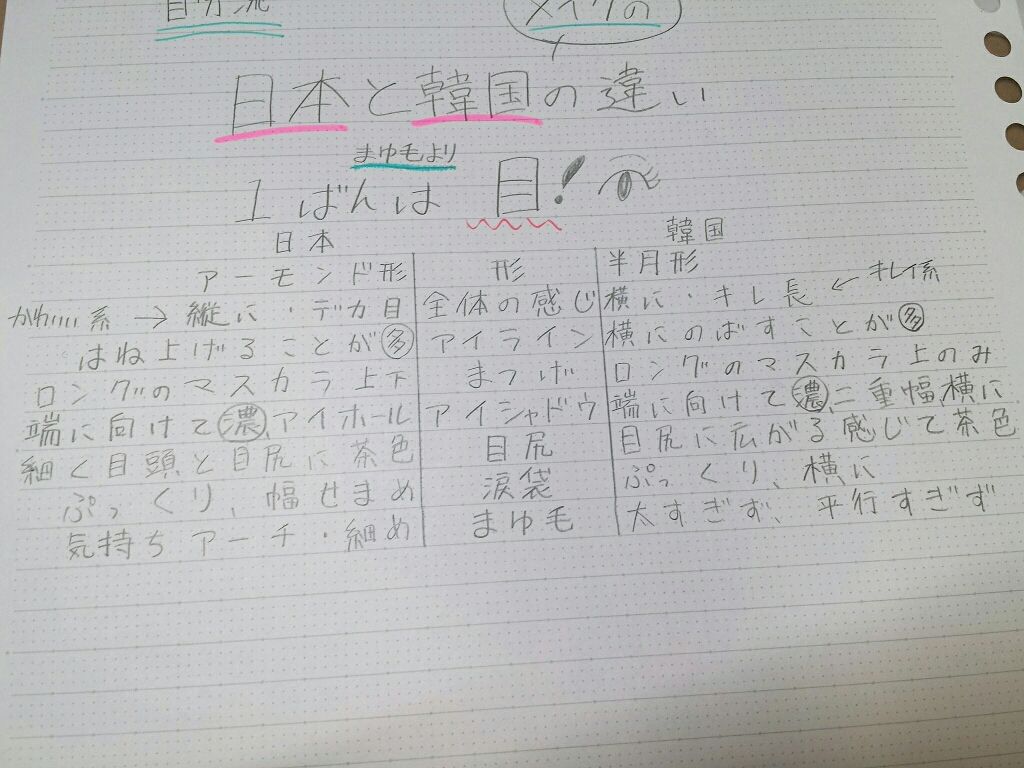 自分流
メイクの
日本と韓国の違い
まゆ毛より
1ばんは 目!
日本 韓国
アーモンド形 形 半月形
かわいい系 → 縦に・デカ目 全体の感じ 横に・キレ長 ← キレイ系
はね上げることが多 アイライン 横にのばすことが多
ロングのマスカラ上下 まつげ ロングのマスカラ上のみ
端に向けて濃、アイホール アイシャドウ 端に向けて濃、二重幅、横に
細く目頭と目尻に茶色 目尻 目尻に広がる感じで茶色
ぷっくり、幅せまめ 涙袋 ぷっくり、横に
気持ちアーチ・細め まゆ毛 太すぎず、平行すぎず